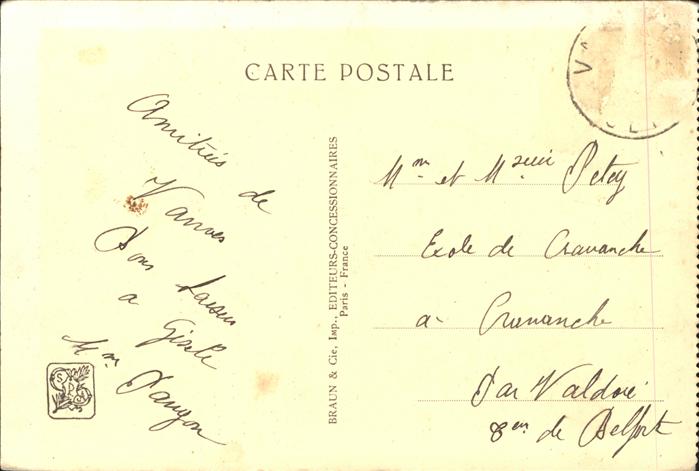 CARTE POSTALE
Amitiés de
Vanves
Bons baisers
a Gisèle
Mm
BRAUN & Cie, Imp., EDITEURS-CONCESSIONNAIRES
Paris - France
Mm et Msieur Petey
Ecole de Cravanche
a Cravanche
Par Valdoie
de Belfort